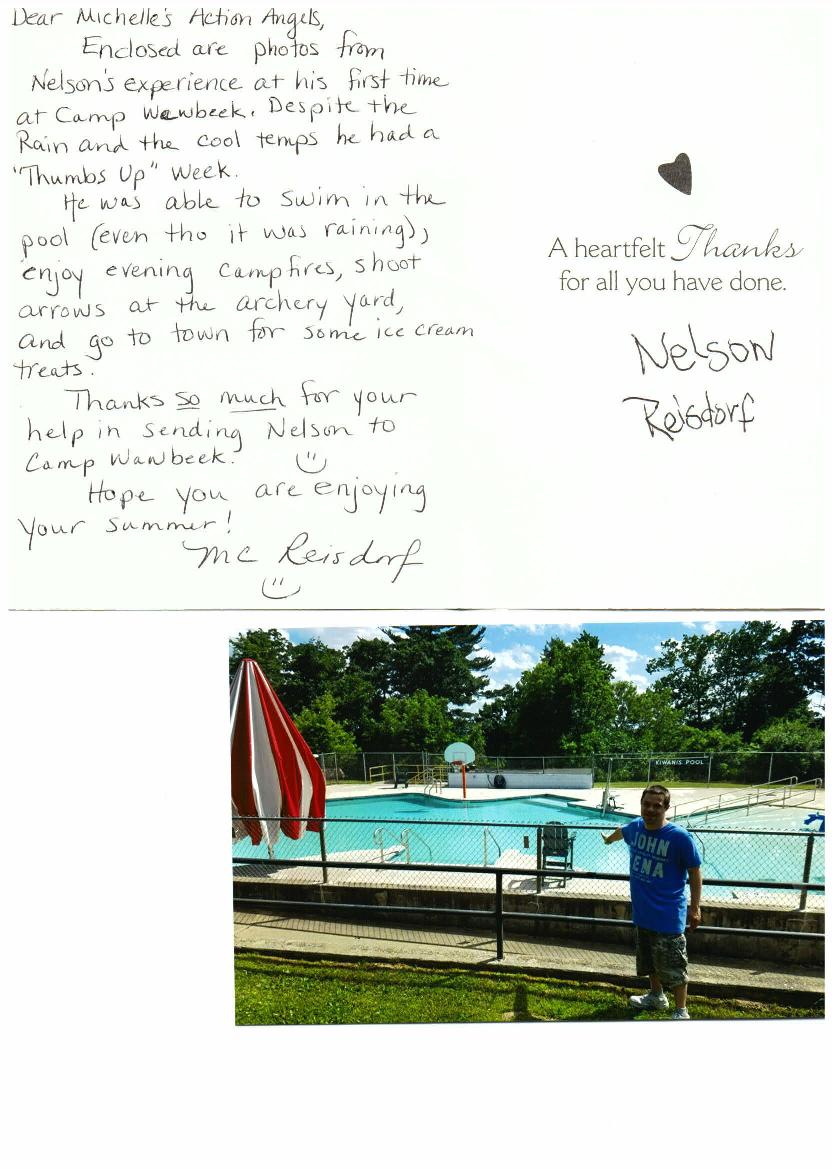 Dear Michelle's Action Angels,
Enclosed are photos from
Nelson's experience at his first time
at Camp Wawbeek. Despite the
Rain and the cool temps he had a
"Thumbs Up" Week.
He was able to swim in the
pool (even tho it was raining),
enjoy evening campfires, shoot
arrows at the archery yard,
and go to town for some ice cream
treats.
Thanks so much for your
help in sending Nelson to
Camp Wawbeek.
Hope you are enjoying
your summer!
MC Reisdorf
A heartfelt Thanks
for all you have done.
Nelson
Reisdorf
KIWANIS POOL
JOHN
ENA